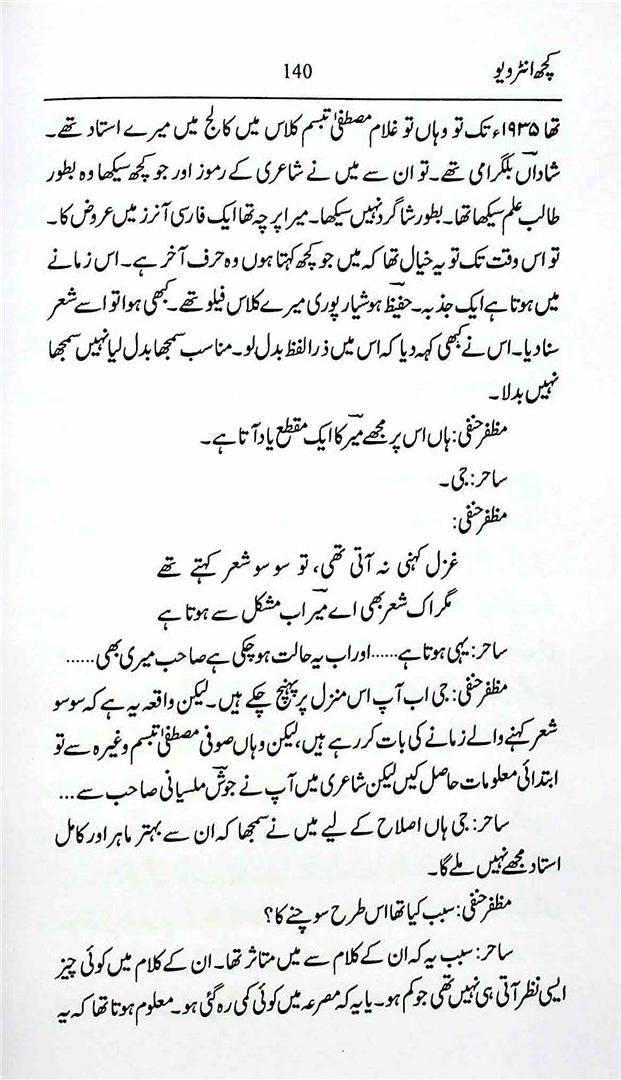 کچھ انٹرویو
140
تھا ۱۹۳۵ء تک تو وہاں تو غلام مصطفیٰ تبسم کلاس میں کالج میں میرے استاد تھے۔
شاداں بلگرامی تھے۔ تو ان سے میں نے شاعری کے رموز اور جو کچھ سیکھا وہ بطور
طالب علم سیکھا تھا۔ بطور شاگرد نہیں سیکھا۔ میرا پرچہ تھا ایک فارسی آنرز میں عروض کا۔
تو اس وقت تک تو یہ خیال تھا کہ میں جو کچھ کہتا ہوں وہ حرف آخر ہے۔ اس زمانے
میں ہوتا ہے ایک جذبہ۔ حفیظؔ ہوشیارپوری میرے کلاس فیلو تھے۔ کبھی ہوا تو اسے شعر
سنا دیا۔ اس نے کبھی کہہ دیا کہ اس میں ذرا لفظ بدل لو۔ مناسب سمجھا بدل لیا نہیں سمجھا
نہیں بدلا۔
مظفر حنفی: ہاں اس پر مجھے میرؔ کا ایک مقطع یاد آتا ہے۔
ساحر: جی۔
مظفر حنفی:
غزل کہنی نہ آتی تھی، تو سو سو شعر کہتے تھے
مگر اک شعر بھی اے میرؔ اب مشکل سے ہوتا ہے
ساحر: یہی ہوتا ہے...... اور اب یہ حالت ہو چکی ہے صاحب میری بھی......
مظفر حنفی: جی اب آپ اس منزل پر پہنچ چکے ہیں۔ لیکن واقعہ یہ ہے کہ سو سو
شعر کہنے والے زمانے کی بات کر رہے ہیں، لیکن وہاں صوفی مصطفیٰ تبسم وغیرہ سے تو
ابتدائی معلومات حاصل کیں لیکن شاعری میں آپ نے جوشؔ ملسیانی صاحب سے ...
ساحر: جی ہاں اصلاح کے لیے میں نے سمجھا کہ ان سے بہتر ماہر اور کامل
استاد مجھے نہیں ملے گا۔
مظفر حنفی: سبب کیا تھا اس طرح سوچنے کا؟
ساحر: سبب یہ کہ ان کے کلام سے میں متاثر تھا۔ ان کے کلام میں کوئی چیز
ایسی نظر آتی ہی نہیں تھی جو کم ہو۔ یا یہ کہ مصرعہ میں کوئی کمی رہ گئی ہو۔ معلوم ہوتا تھا کہ یہ